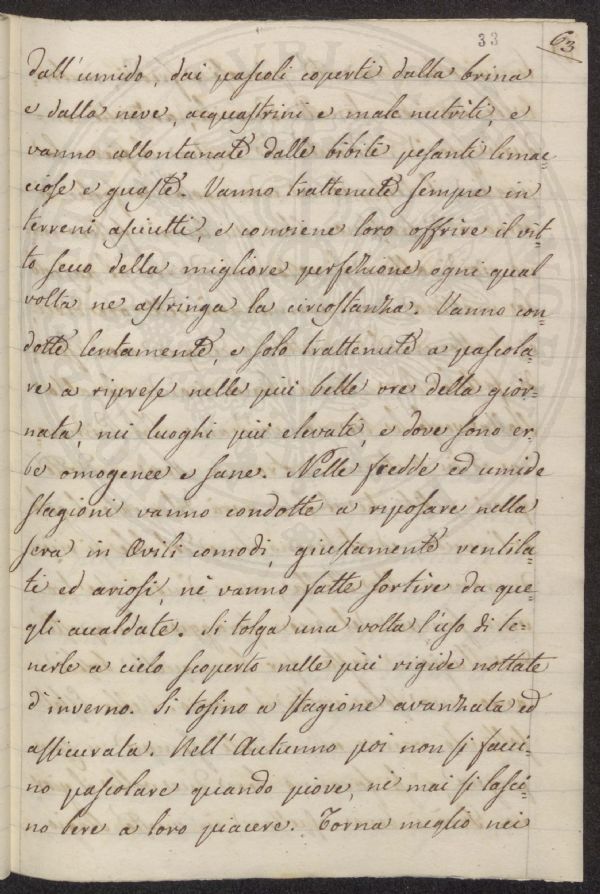 33
63
dall'umido, dai pascoli coperti dalla brina
e dalla neve, acquastrini e male nutriti, e
vanno allontanate dalle bibite pesanti limac=
ciose e guaste. Vanno trattenute sempre in
terreni asciutti, e conviene loro offrire il vit=
to secco della migliore perfezione ogni qual
volta ne astringa la circostanza. Vanno con=
dotte lentamente, e solo trattenute a pascola=
re a riprese nelle più belle ore della gior=
nata, nei luoghi più elevati, e dove sono er=
be omogenee e sane. Nelle fredde ed umide
stagioni vanno condotte a riposare nella
sera in Ovili comodi, giustamente ventila=
ti ed ariosi, nè vanno fatte sortire da que=
gli accaldate. Si tolga una volta l'uso di te=
nerle a cielo scoperto nelle più rigide nottate
d'inverno. Si tosino a stagione avanzata ed
assicurata. Nell'Autunno poi non si facci=
no pascolare quando piove, nè mai si lasci=
no bere a loro piacere. Torna meglio nei